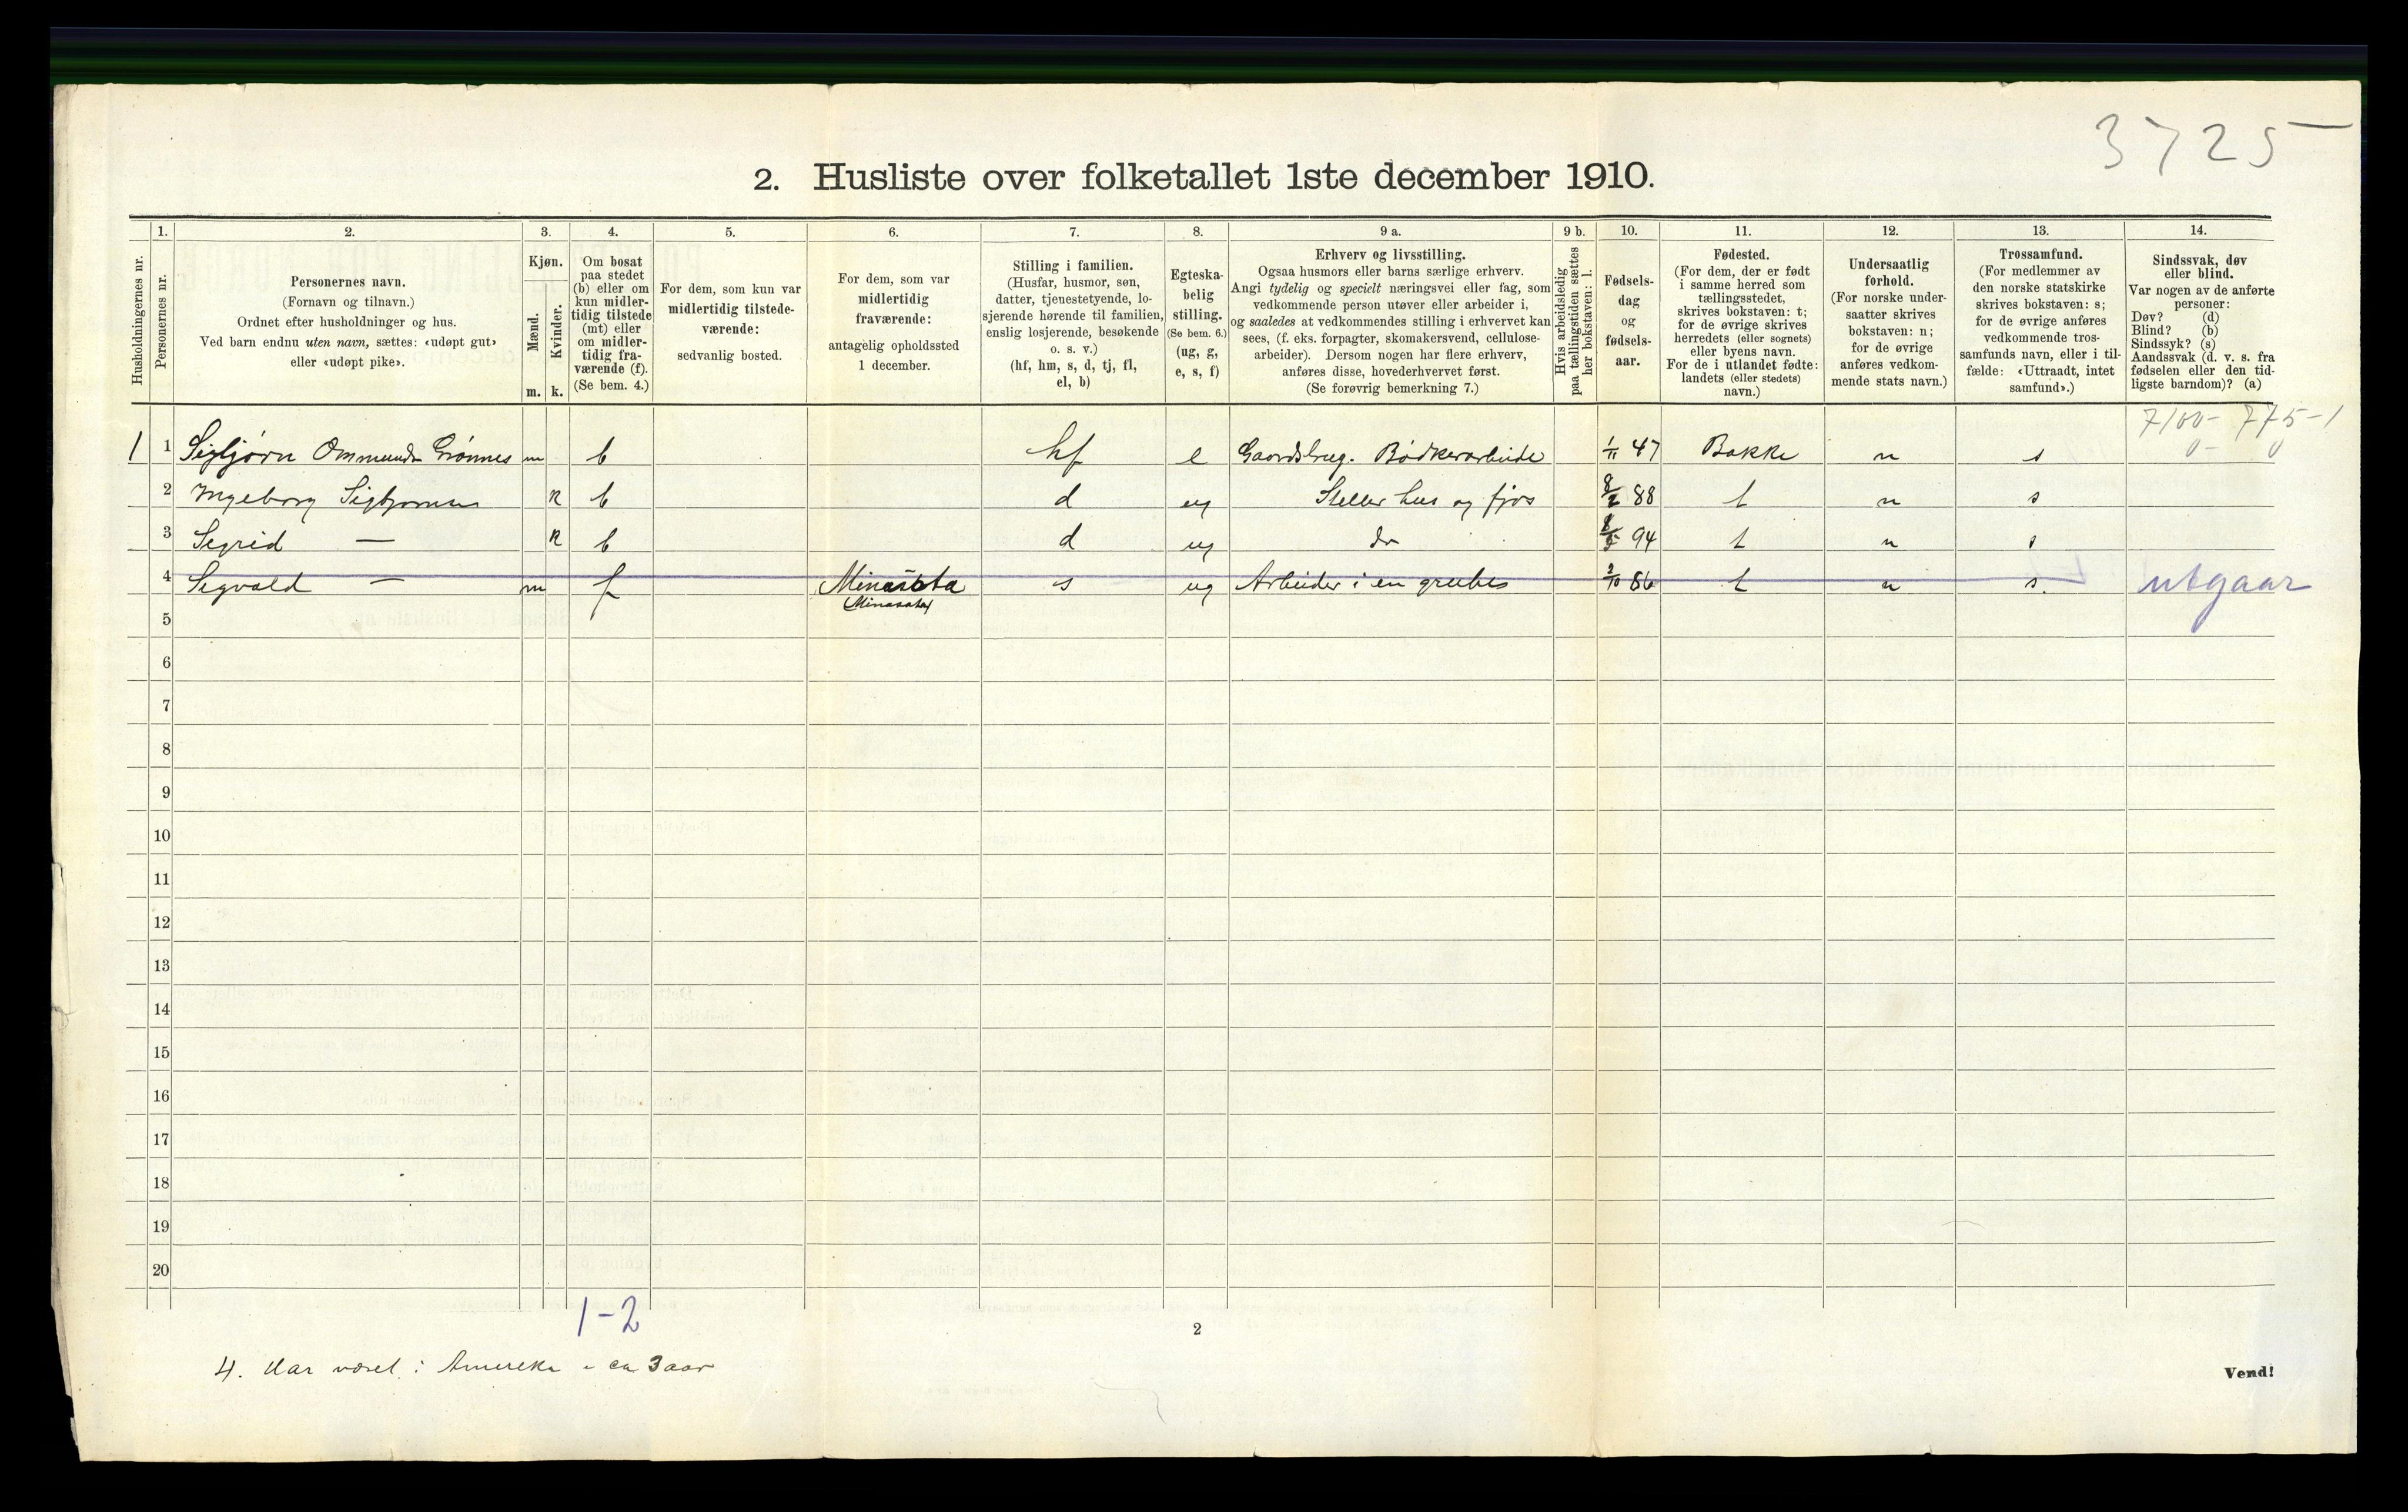 3725
2. Husliste over folketallet 1ste december 1910.
Husholdningernes nr.
1.
Personernes nr.
2.
Personernes navn.
(Fornavn og tilnavn.)
Ordnet efter husholdninger og hus.
Ved barn endnu uten navn, sættes: «udøpt gut»
eller «udøpt pike».
3.
Kjøn.
Mænd.
Kvinder.
m. k.
4.
Om bosat
paa stedet
(b) eller om
kun midler-
tidig tilstede
(mt) eller
om midler-
tidig fra-
værende (f).
(Se bem. 4.)
5.
For dem, som kun var
midlertidig tilstede-
værende:
sedvanlig bosted.
6.
For dem, som var
midlertidig
fraværende:
antagelig opholdssted
1 december.
7.
Stilling i familien.
(Husfar, husmor, søn,
datter, tjenestetyende, lo-
sjerende hørende til familien,
enslig losjerende, besøkende
o. s. v.)
(hf, hm, s, d, tj, fl,
el, b)
8.
Egteska-
belig
stilling.
(Se bem. 6.)
(ug, g,
e, s, f)
9 a.
Erhverv og livsstilling.
Ogsaa husmors eller barns særlige erhverv.
Angi tydelig og specielt næringsvei eller fag, som
vedkommende person utøver eller arbeider i,
og saaledes at vedkommendes stilling i erhvervet kan
sees, (f. eks. forpagter, skomakersvend, cellulose-
arbeider). Dersom nogen har flere erhverv,
anføres disse, hovederhvervet først.
(Se forøvrig bemerkning 7.)
9 b.
Hvis arbeidsledig
paa tællingstiden sættes
her bokstaven: l.
10.
Fødsels-
dag
og
fødsels-
aar.
11.
Fødested.
(For dem, der er født
i samme herred som
tællingsstedet,
skrives bokstaven: t;
for de øvrige skrives
herredets (eller sognets)
eller byens navn.
For de i utlandet fødte:
landets (eller stedets)
navn.)
12.
Undersaatlig
forhold.
(For norske under-
saatter skrives
bokstaven: n;
for de øvrige
anføres vedkom-
mende stats navn.)
13.
Trossamfund.
(For medlemmer av
den norske statskirke
skrives bokstaven: s;
for de øvrige anføres
vedkommende tros-
samfunds navn, eller i til-
fælde: «Uttraadt, intet
samfund».)
14.
Sindssvak, døv
eller blind.
Var nogen av de anførte
personer:
Døv? (d)
Blind? (b)
Sindssyk? (s)
Aandssvak (d. v. s. fra
fødselen eller den tid-
ligste barndom)? (a)
7100- 775-1
0- 0
1 1 Sigbjørn Ommunds Grønnes m b hf e Gaardsbrug. Bødkerarbeide 1/11 47 Bakke n s
2 Ingeborg Sigbjørnsen k b d ug Steller hus og fjøs 8/2 88 t n s
3 Sigrid — k b d ug do 94 t n s
4 Sigvald — m f s ug Arbeider i en grube 86 t n s. utgaar
(Minasota)
5
6
7
8
9
10
11
12
13
14
15
16
17
18
19
20
1-2
2
4. Har været i Amerika i ca 3 aar
Vend!